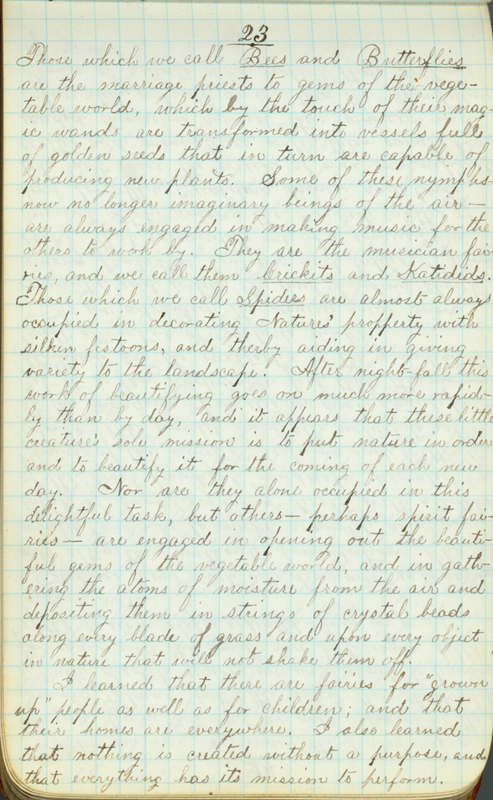 23
Those which we call Bees and Butterflies
are the marriage priests to gems of the vege-
table world, which by the touch of their mag-
ic wands are transformed into vessels full
of golden seeds that in turn are capable of
producing new plants. Some of these nymphs
now no longer imaginary beings of the air —
are always engaged in making music for the
others to work by. They are the musician fai-
ries, and we call them Crickits and Katidids.
Those which we call Spiders are almost always
occupied in decorating Natures' propperty with
silken festoons, and therby aiding in giving
variety to the landscape. After night-fall this
work of beautifying goes on much more rapid-
ly than by day, and it appears that these little
creature's sole mission is to put nature in order
and to beautify it for the coming of each new
day. Nor are they alone occupied in this
delightful task, but others — perhaps spirit fai-
ries — are engaged in opening out the beauti-
ful gems of the vegetable world, and in gath-
ering the atoms of moisture from the air and
depositing them in strings of crystal beads
along every blade of grass and upon every object
in nature that will not shake them off.
I learned that there are fairies for "grown
up" people as well as for children; and that
their homes are everywhere. I also learned
that nothing is created without a purpose, and
that everything has its mission to perform.